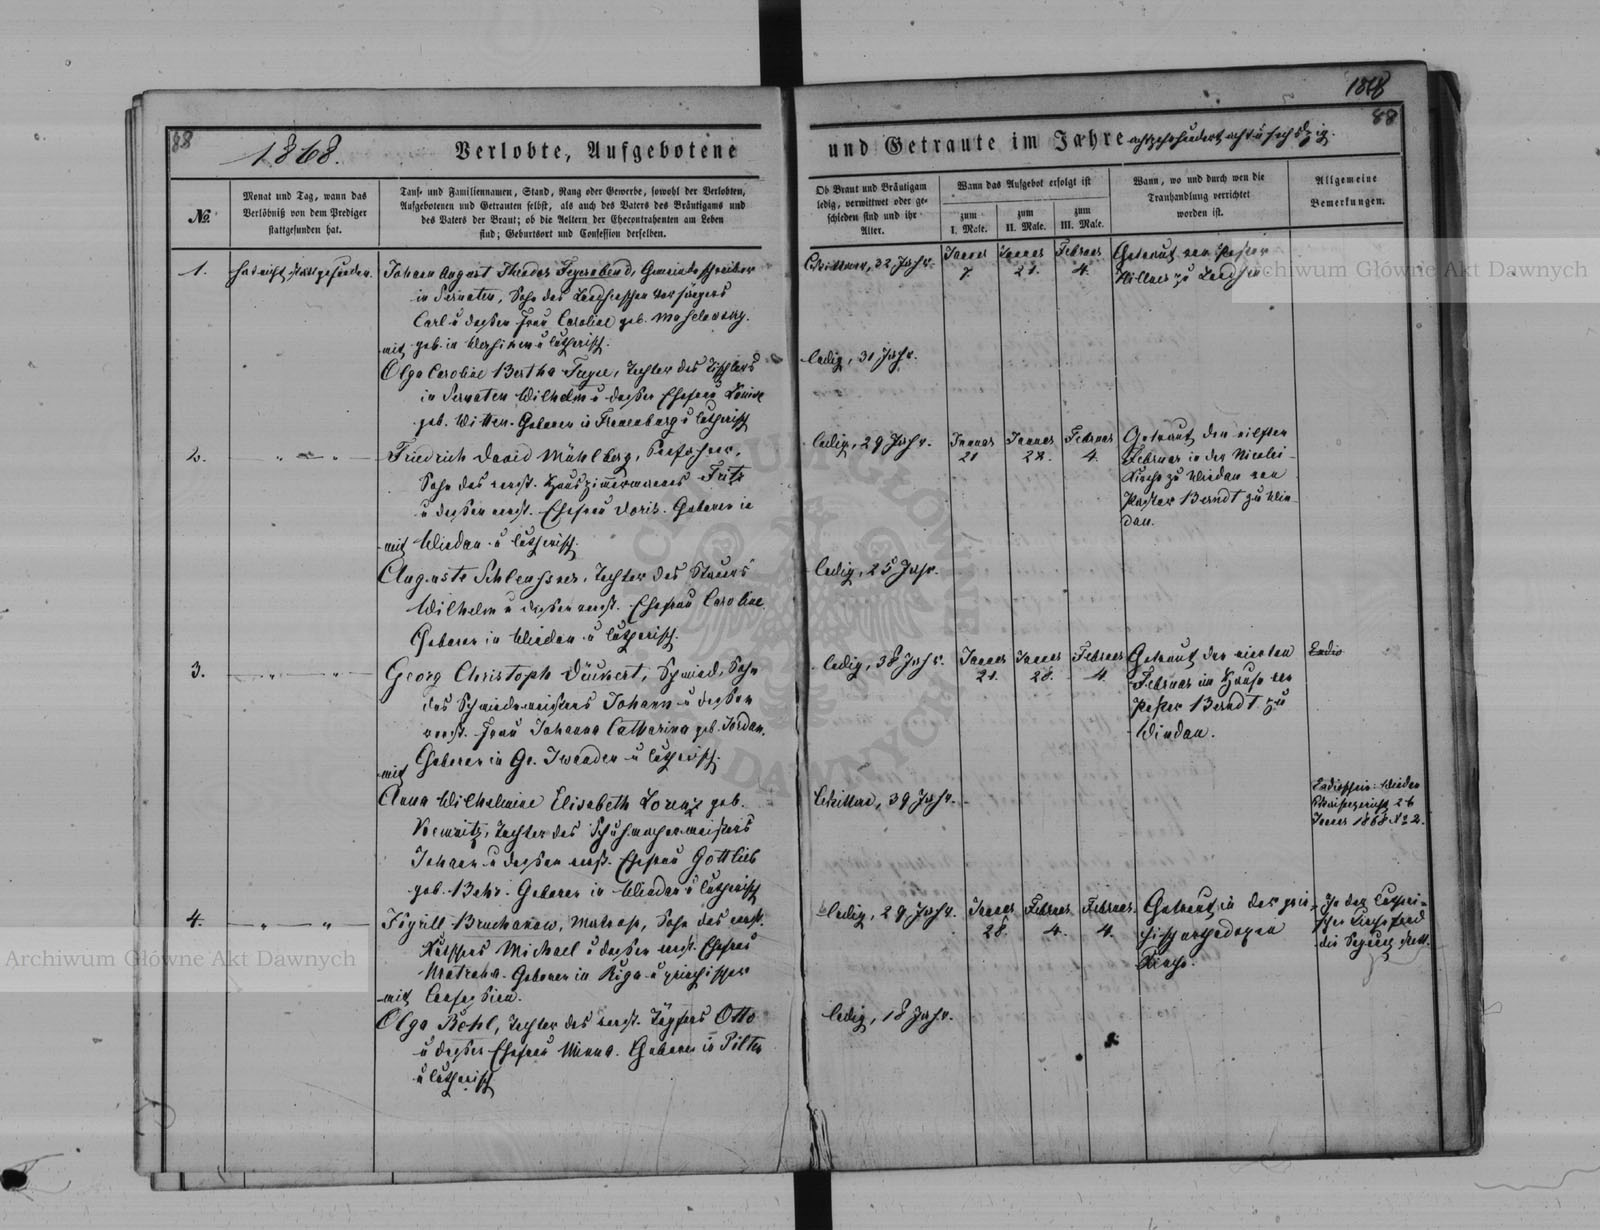 1868
88
88
1868.
Verlobte, Aufgebotene
und Getraute im Jahre achtzehnhundert acht u sechszig.
№
Monat und Tag, wann das
Verlöbniß von dem Prediger
stattgefunden hat.
Tauf- und Familiennamen, Stand, Rang oder Gewerbe, sowohl der Verlobten,
Aufgebotenen und Getrauten selbst, als auch des Vaters des Bräutigams und
des Vaters der Braut; ob die Aeltern der Ehecontrahenten am Leben
sind; Geburtsort und Confession derselben.
Ob Braut und Bräutigam
ledig, verwittwet oder ge-
schieden sind und ihr
Alter.
Wann das Aufgebot erfolgt ist
zum
I. Male.
zum
II. Male.
zum
III. Male.
Wann, wo und durch wen die
Trauhandlung verrichtet
worden ist.
Allgemeine
Bemerkungen.
1.
hat nicht stattgefunden.
Johann August Theodor Feyerabend, Gemeindeschreiber
in Sernaten, Sohn des
Carl u dessen Frau Caroline geb.
geb. in u lutherisch.
mit
Olga Caroline Bertha Tugge, Tochter des Tischlers
in Sernaten Wilhelm u dessen Ehefrau Louise
geb. Witten. Geboren in Frauenburg u lutherisch
Wittwer, 32 Jahr.
ledig, 31 Jahr.
Januar
7
Januar
21.
Februar
4.
Getraut von Pastor
zu
2.
Friedrich David Mühlberg,
Sohn des verst. Hauszimmermanns Fritz
u dessen verst. Ehefrau Doris. Geboren in
mit Windau u lutherisch.
Auguste Schleussner, Tochter des
Wilhelm u dessen verst. Ehefrau Caroline
Geboren in Windau u lutherisch.
ledig, 29 Jahr.
ledig, 25 Jahr.
Januar
21
Januar
28.
Februar
4.
Getraut den eilften
Februar in der Nicolai-
Kirche zu Windau von
Pastor Berndt zu Win-
dau.
3.
Georg Christoph Däuwert, Schmied, Sohn
des Schmiedemeisters Johann u dessen
verst. Frau Johanna Catharina geb. Jordan.
Geboren in Gr. Iwanden u lutherisch.
mit
Anna Wilhelmine Elisabeth Lorenz geb.
Tochter des Schuhmachermeisters
Johann u dessen verst. Ehefrau Gottlieb
geb. Behr. Geboren in Windau u lutherisch
ledig, 38 Jahr.
Wittwe, 39 Jahr.
Januar
21.
Januar
28.
Februar
4.
Getraut den vierten
Februar im Hause von
Pastor Berndt zu
Windau.
Windau
26
Januar 1868 № 2.
4.
Kyrill Bruchanow, Matrose, Sohn des verst.
Michael u dessen verst. Ehefrau
Matrona. Geboren in Riga u griechischer
mit Confession.
Olga Böhl, Tochter des verst. Töpfers Otto
u dessen Ehefrau Minna. Geboren in Pilten
u lutherisch
ledig, 29 Jahr.
ledig, 18 Jahr.
Januar
28.
Februar
4.
Februar
4.
Getraut in der grie-
chisch orthodoxen
Kirche.
In der lutheri-
schen Kirche fand
Archiwum Główne Akt Dawnych
Archiwum Główne Akt Dawnych
ARCHIWUM GŁÓWNE AKT DAWNYCH